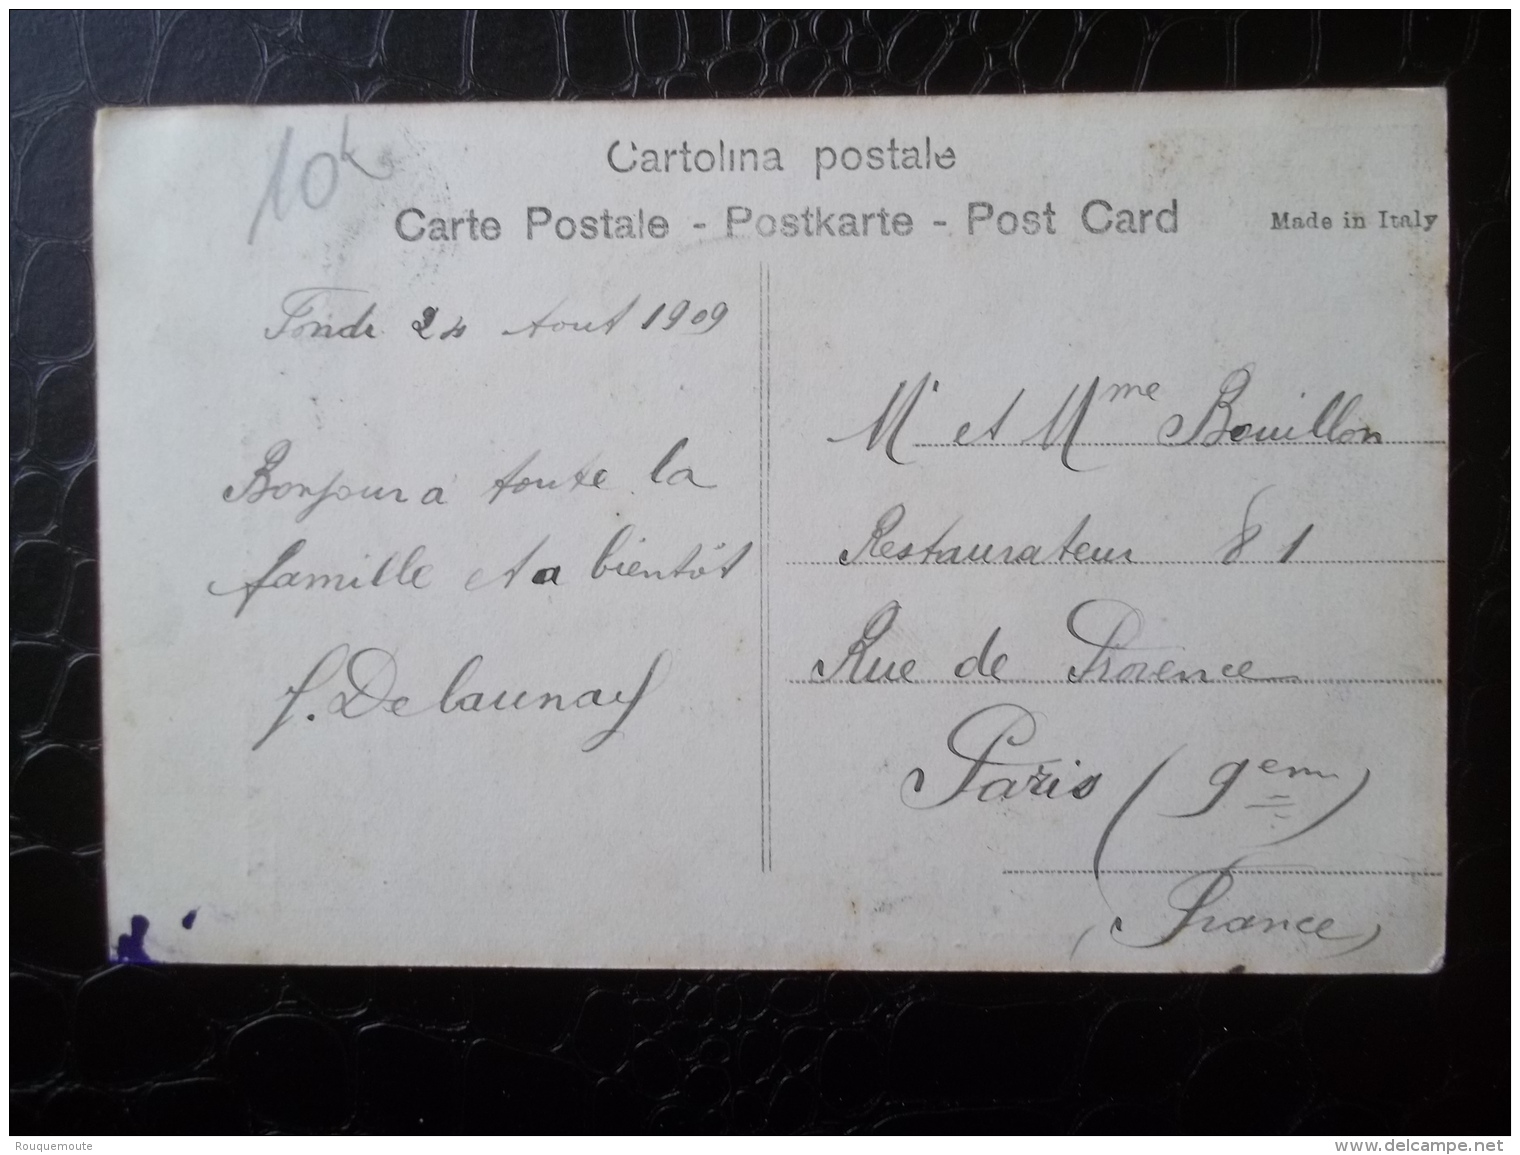 10
Cartolina postale
Carte Postale - Postkarte - Post Card
Made in Italy
24 Aout 1909
Bonjour a toute la
famille et a bientôt
f. Delaunay
Mr et Mme Bouillon
Restaurateur 81
Rue de Provence
Paris (9em)
France
Rouquemoute
www.delcampe.net